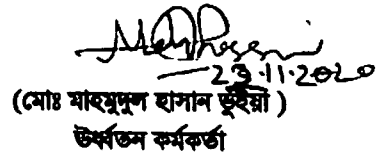 23.11.2020
(মোঃ মাহমুদুল হাসান ভূইয়া)
উর্ধ্বতন কর্মকর্তা